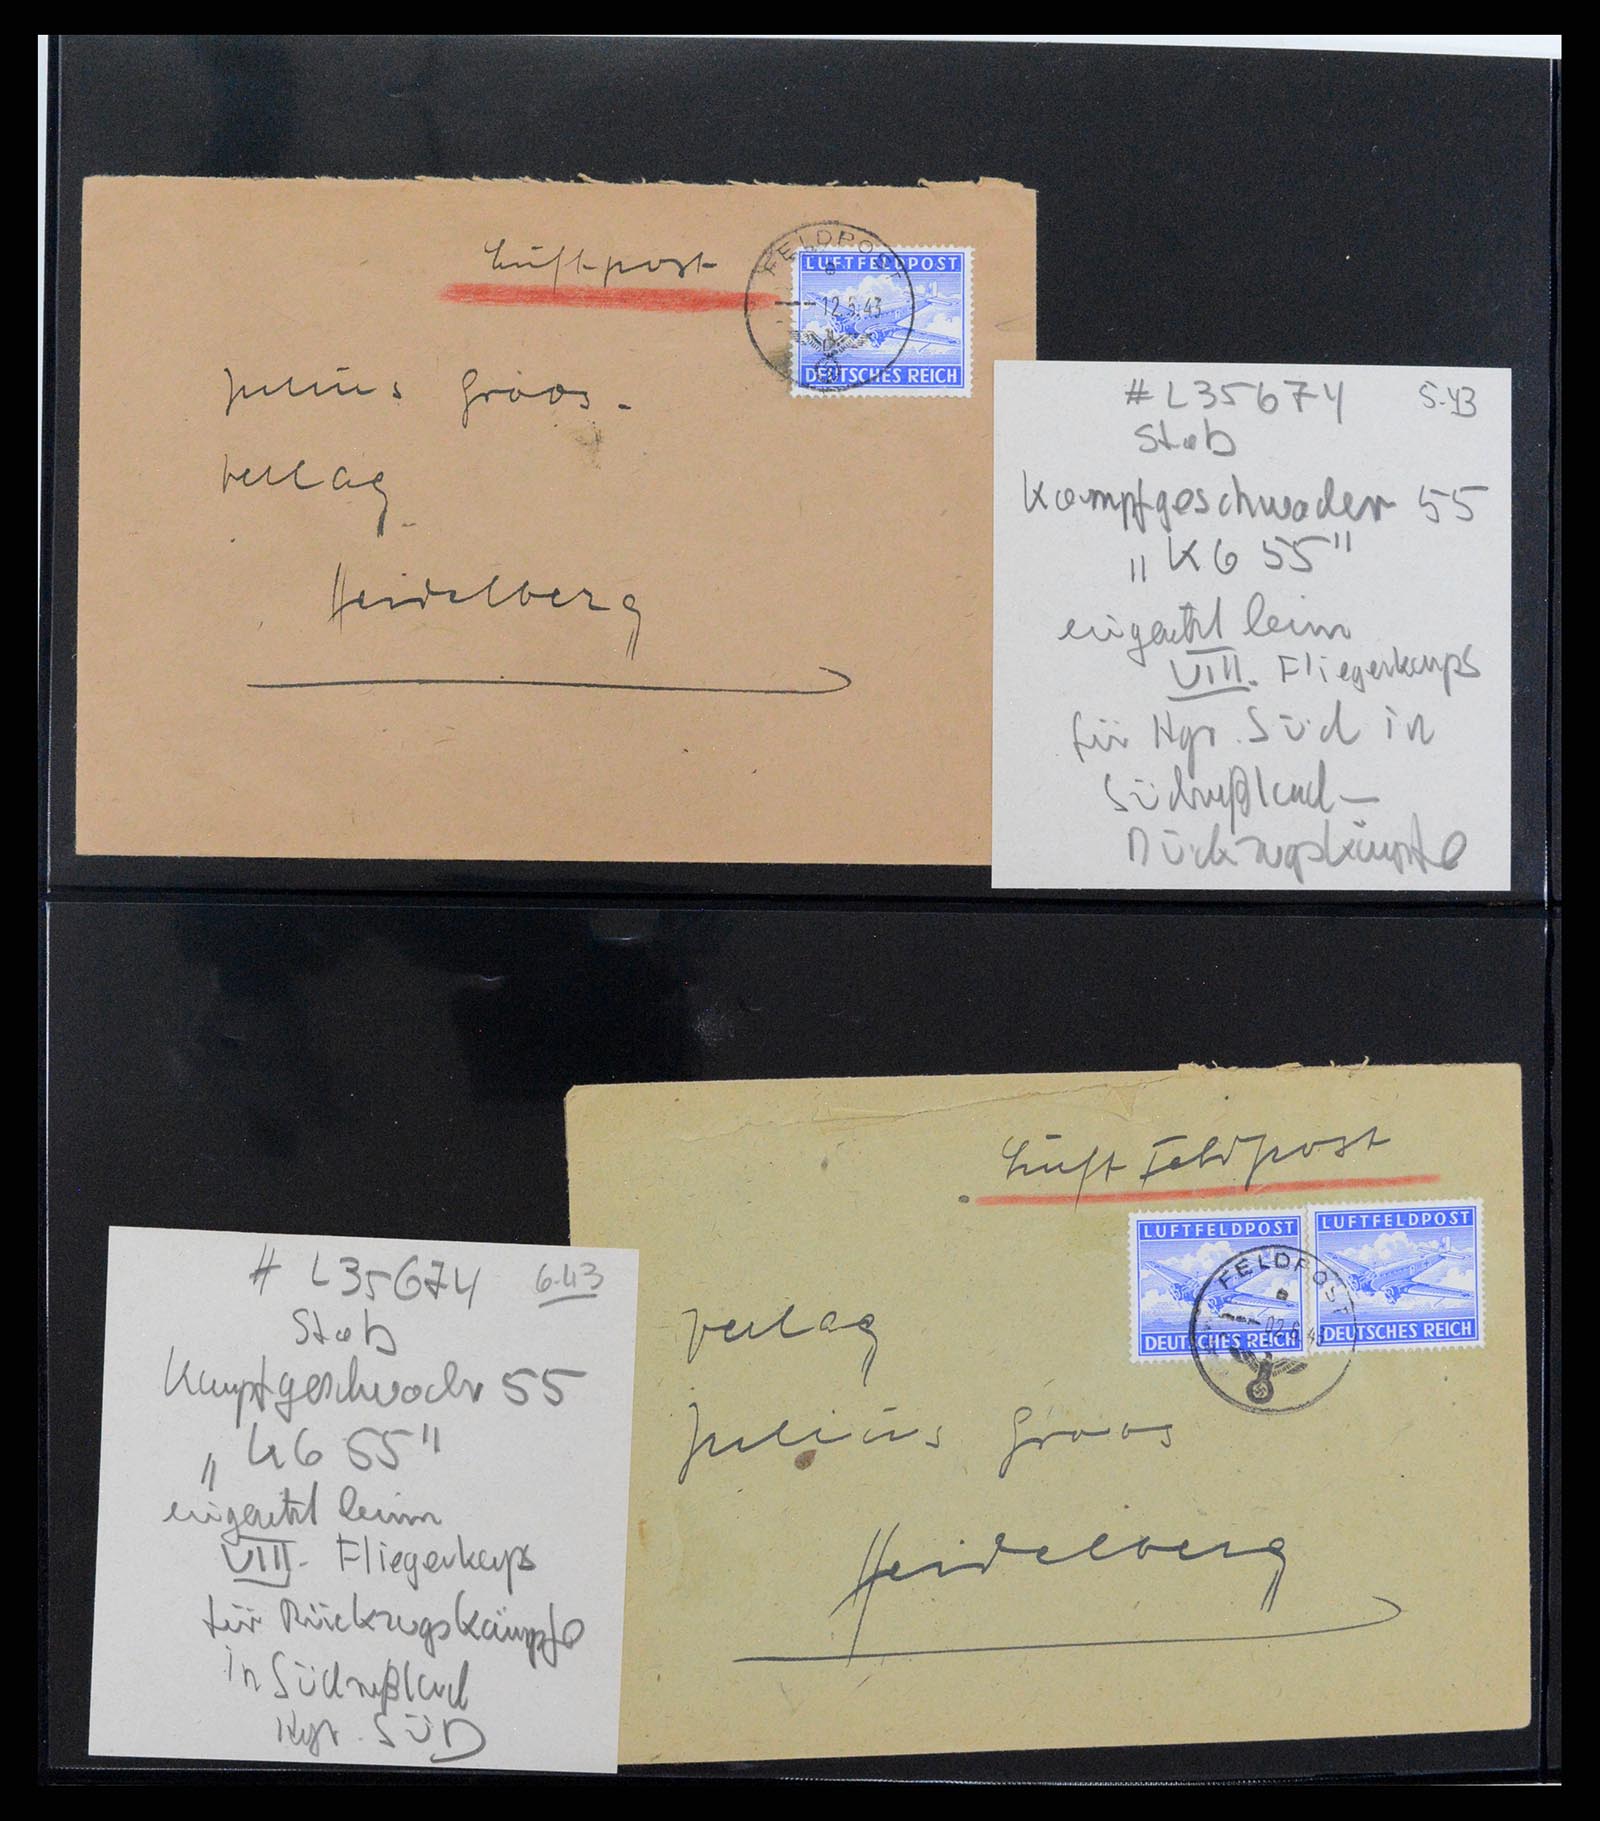 Luftpost
FELDPOST
a
---12.5.43
LUFTFELDPOST
DEUTSCHES REICH
Julius Groos-
Verlag
Heidelberg
# L35674 5.43
Stab
Kampfgeschwader 55
„KG 55"
eingesetzt beim
VIII. Fliegerkorps
für Hgr. Süd in
Südrußland -
Rückzugskämpfe
Luft Feldpost
LUFTFELDPOST
DEUTSCHES REICH
LUFTFELDPOST
DEUTSCHES REICH
FELDPOST
a
---02.6.43
Verlag
Julius Groos
Heidelberg
# L35674 6.43
Stab
Kampfgeschwader 55
„KG 55"
eingesetzt beim
VIII. Fliegerkorps
für Rückzugskämpfe
in Südrußland
Hgr. SÜD